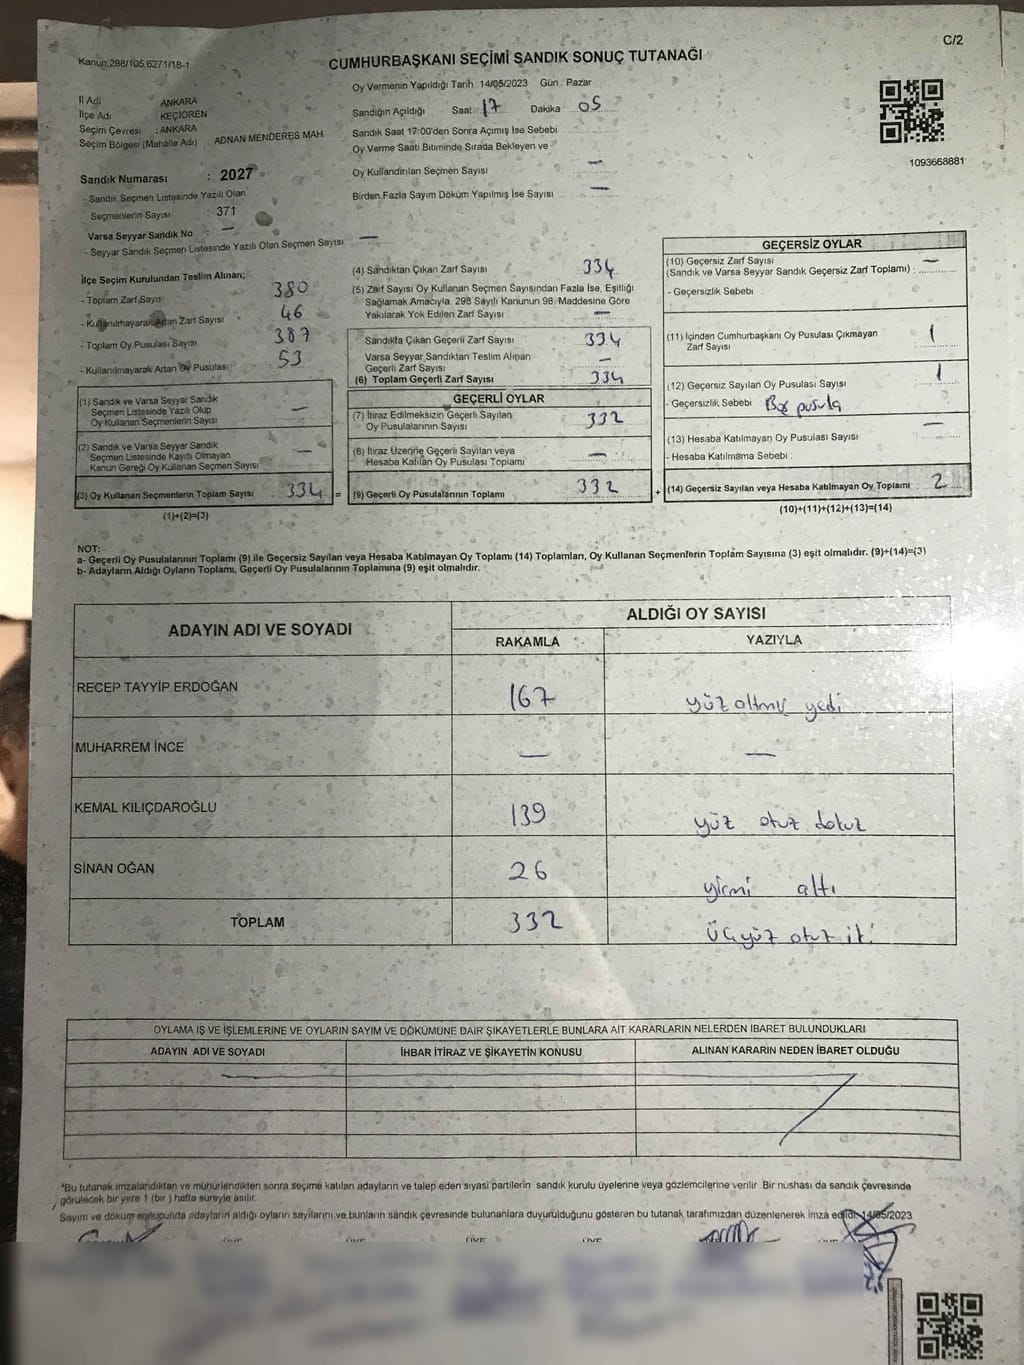 C/2
Kanun 298/105.6271/18-1
CUMHURBAŞKANI SEÇİMİ SANDIK SONUÇ TUTANAĞI
Oy Vermenin Yapıldığı Tarih 14/05/2023 Gün : Pazar
İl Adı ANKARA
İlçe Adı KEÇİÖREN
Seçim Çevresi : ANKARA
Seçim Bölgesi (Mahalle Adı) ADNAN MENDERES MAH.
Sandığın Açıldığı Saat 17 Dakika 05
Sandık Saat 17:00'den Sonra Açımış İse Sebebi
Oy Verme Saati Bitiminde Sırada Bekleyen ve
Oy Kullandırılan Seçmen Sayısı —
Birden Fazla Sayım Döküm Yapılmış İse Sayısı —
1093668881
Sandık Numarası : 2027
- Sandık Seçmen Listesinde Yazılı Olan
Seçmenlerin Sayısı : 371
Varsa Seyyar Sandık No : —
- Seyyar Sandık Seçmen Listesinde Yazılı Olan Seçmen Sayısı —
İlçe Seçim Kurulundan Teslim Alınan;
- Toplam Zarf Sayısı 380
- Kullanılmayarak Artan Zarf Sayısı 46
- Toplam Oy Pusulası Sayısı 387
- Kullanılmayarak Artan Oy Pusulası 53
(1) Sandık ve Varsa Seyyar Sandık
Seçmen Listesinde Yazılı Olup
Oy Kullanan Seçmenlerin Sayısı —
(2) Sandık ve Varsa Seyyar Sandık
Seçmen Listesinde Kayıtlı Olmayan
Kanun Gereği Oy Kullanan Seçmen Sayısı —
(3) Oy Kullanan Seçmenlerin Toplam Sayısı 334 =
(1)+(2)=(3)
(4) Sandıktan Çıkan Zarf Sayısı 334
(5) Zarf Sayısı Oy Kullanan Seçmen Sayısından Fazla İse, Eşitliği
Sağlamak Amacıyla, 298 Sayılı Kanunun 98. Maddesine Göre
Yakılarak Yok Edilen Zarf Sayısı —
Sandıkta Çıkan Geçerli Zarf Sayısı 334
Varsa Seyyar Sandıktan Teslim Alınan
Geçerli Zarf Sayısı —
(6) Toplam Geçerli Zarf Sayısı 334
GEÇERLİ OYLAR
(7) İtiraz Edilmeksizin Geçerli Sayılan
Oy Pusulalarının Sayısı 332
(8) İtiraz Üzerine Geçerli Sayılan veya
Hesaba Katılan Oy Pusulası Toplamı —
(9) Geçerli Oy Pusulalarının Toplamı 332 +
GEÇERSİZ OYLAR
(10) Geçersiz Zarf Sayısı —
(Sandık ve Varsa Seyyar Sandık Geçersiz Zarf Toplamı) :
- Geçersizlik Sebebi :
(11) İçinden Cumhurbaşkanı Oy Pusulası Çıkmayan
Zarf Sayısı 1
(12) Geçersiz Sayılan Oy Pusulası Sayısı 1
- Geçersizlik Sebebi Boş pusula
(13) Hesaba Katılmayan Oy Pusulası Sayısı —
- Hesaba Katılmama Sebebi :
(14) Geçersiz Sayılan veya Hesaba Katılmayan Oy Toplamı : 2
(10)+(11)+(12)+(13)=(14)
NOT:
a- Geçerli Oy Pusulalarının Toplamı (9) ile Geçersiz Sayılan veya Hesaba Katılmayan Oy Toplamı (14) Toplamları, Oy Kullanan Seçmenlerin Toplam Sayısına (3) eşit olmalıdır. (9)+(14)=(3)
b- Adayların Aldığı Oyların Toplamı, Geçerli Oy Pusulalarının Toplamına (9) eşit olmalıdır.
ADAYIN ADI VE SOYADI ALDIĞI OY SAYISI
RAKAMLA YAZIYLA
RECEP TAYYİP ERDOĞAN 167 yüz altmış yedi
MUHARREM İNCE — —
KEMAL KILIÇDAROĞLU 139 yüz otuz dokuz
SİNAN OĞAN 26 yirmi altı
TOPLAM 332 üçyüz otuz iki
OYLAMA İŞ VE İŞLEMLERİNE VE OYLARIN SAYIM VE DÖKÜMÜNE DAİR ŞİKAYETLERLE BUNLARA AİT KARARLARIN NELERDEN İBARET BULUNDUKLARI
ADAYIN ADI VE SOYADI İHBAR İTİRAZ VE ŞİKAYETİN KONUSU ALINAN KARARIN NEDEN İBARET OLDUĞU
*Bu tutanak imzalandıktan ve mühürlendikten sonra seçime katılan adayların ve talep eden siyasi partilerin sandık kurulu üyelerine veya gözlemcilerine verilir Bir nushası da sandık çevresinde
görülecek bir yere 1 (bir ) hafta süreyle asılır.
Sayım ve döküm sonucunda adayların aldığı oyların sayılarını ve bunların sandık çevresinde bulunanlara duyurulduğunu gösteren bu tutanak tarafımızdan düzenlenerek imza edildi. 14/05/2023